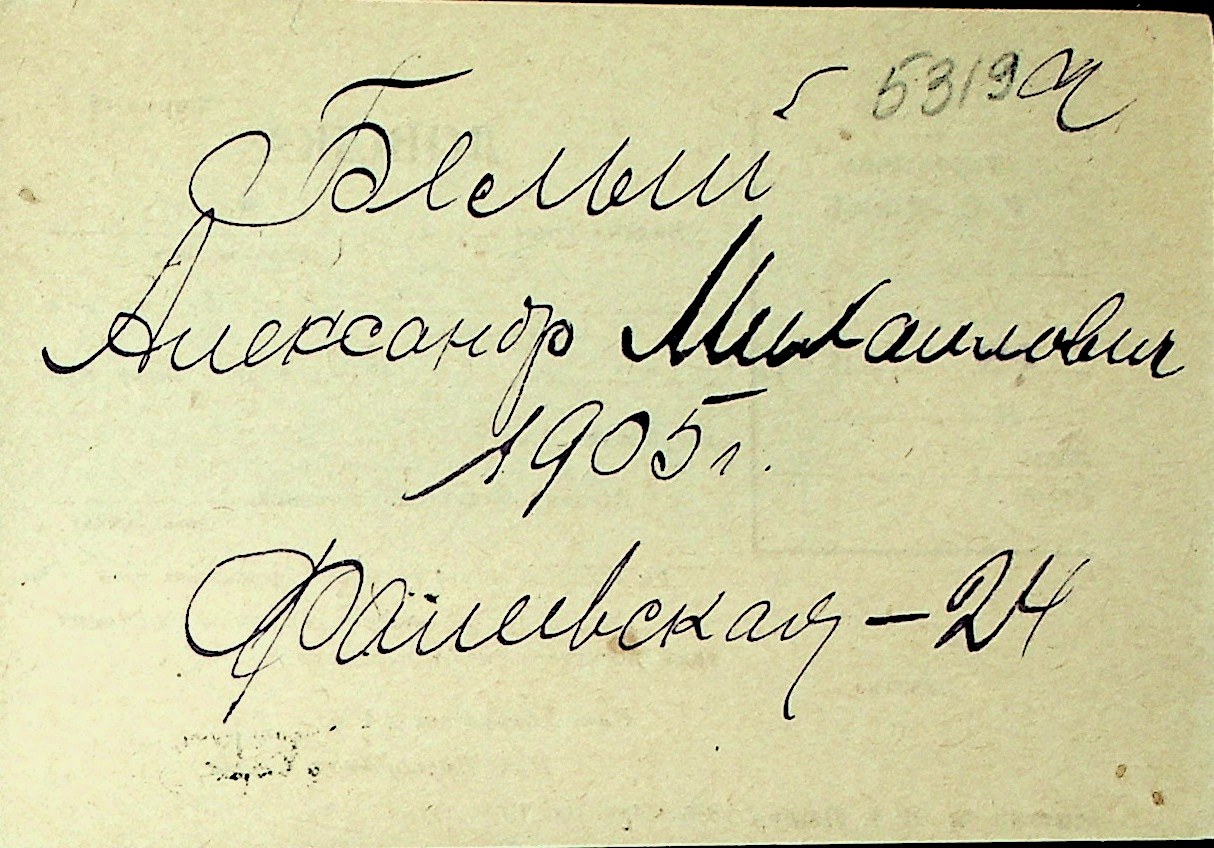 5319 и
Белый
Александр Михаилович
1905 г.
Фалеевская – 24